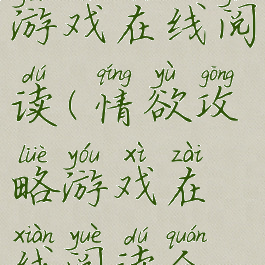 游戏在线阅
dú qíng yù gōng
读(情欲攻
lüè yóu xì zài
略游戏在
xiàn yuè dú quán
线阅读全